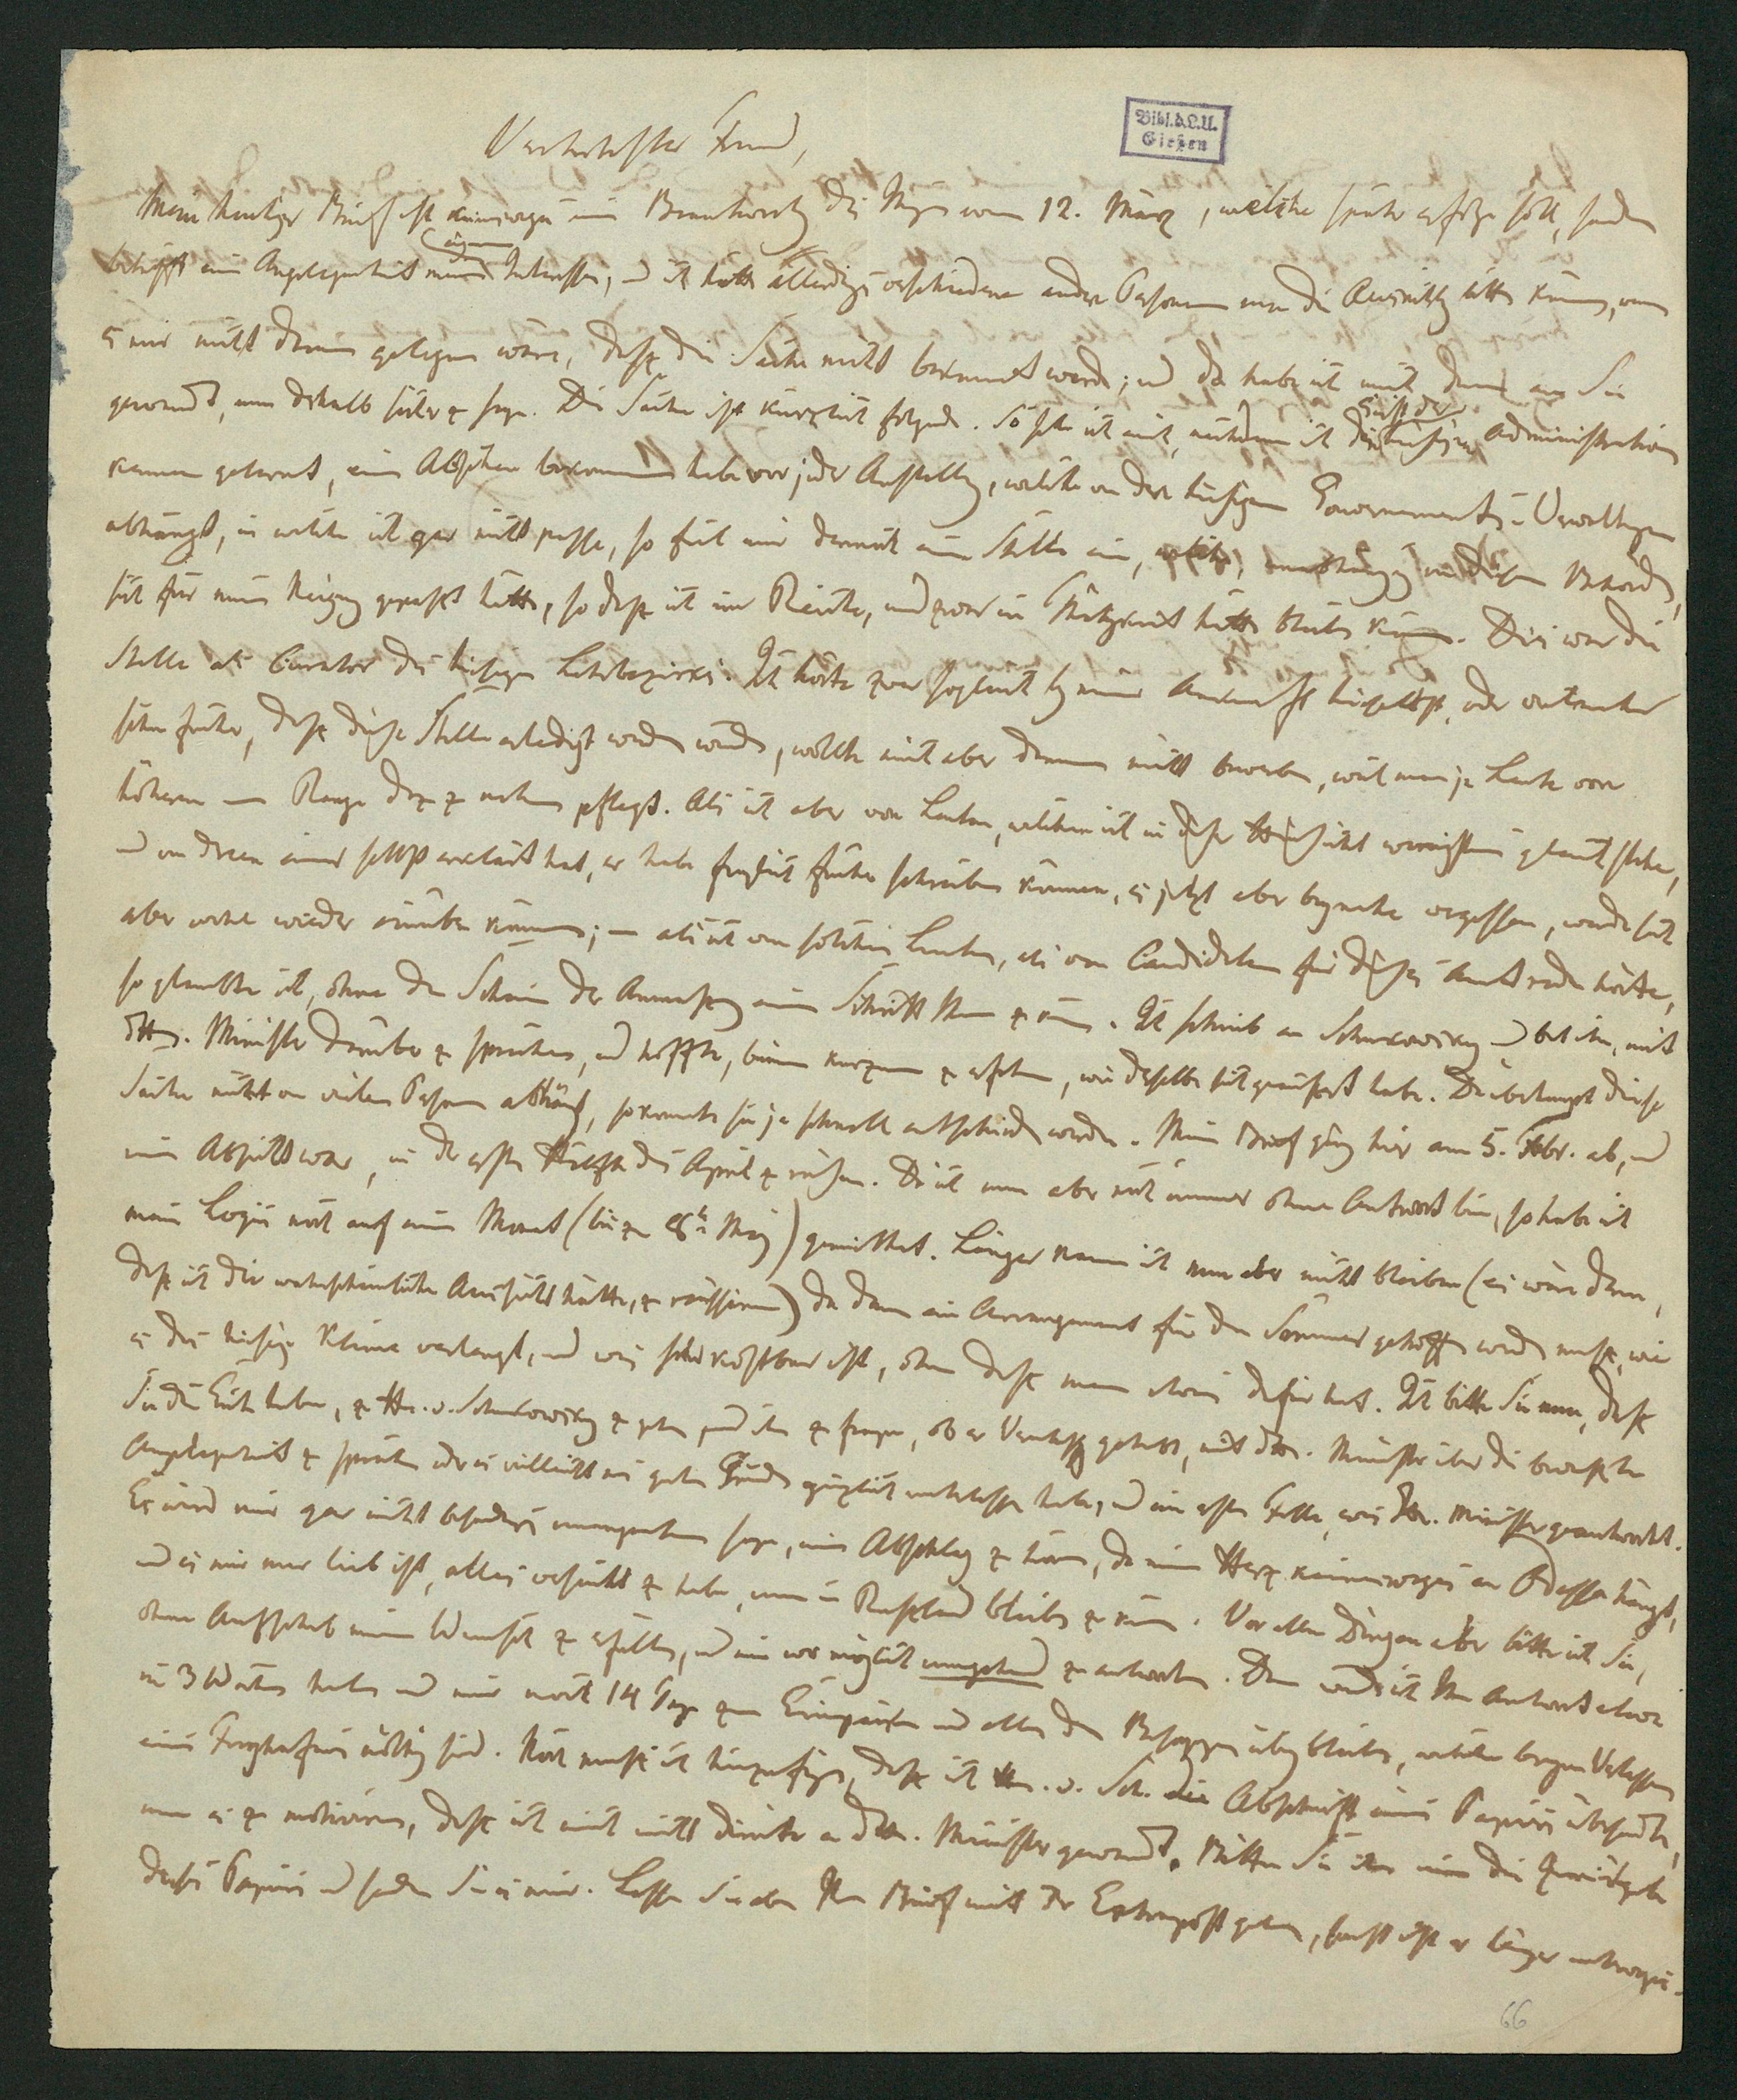 Verehrtester Freund,
Bibl. d. L. U.
Gießen
Mein heutiger Brief ist keineswegs eine Beantwortung des Ihrigen vom 12. März, welche später erfolgen soll, sondern
betrifft eine Angelegenheit meines eigenen Interesses, und ich hätte allerdings verschiedene andere Personen um die Auskunft bitten können, wenn
es mir nicht daran gelegen wäre, daß die Sache nicht bekannt werde; und da habe ich mich denn an Sie
gewandt, um deshalb sicher zu seyn. Die Sache ist kürzlich folgende. So sehr ich auch, nachdem ich den Geist der hiesigen Administration
kennen gelernt, einen Abscheu bekommen habe vor jeder Anstellung, welche von der hiesigen Gouvernements-Verwaltung
abhängt, in welche ich gar nicht passe, so fiel mir dennoch eine Stelle ein, welche, unabhängig von diesen Behörden,
sich für meine Neigung gepaßt hätte, so daß ich im Reiche, und zwar in hätte bleiben können. Dies war die
Stelle als Curator des hiesigen Lehrbezirks. Ich hörte zwar sogleich bey meiner Ankunft hieselbst, oder vielmehr
schon früher, daß diese Stelle erledigt werden würde, wollte mich aber darum nicht bewerben, weil man ja Leute von
höherem Range dazu zu nehmen pflegt. Als ich aber von Leuten, welchen ich in dieser Hinsicht wenigstens gleich stehe,
und von denen einer selbst erklärt hat, er habe freylich früher schreiben können, es jetzt aber beynahe vergessen, werde sich
aber wohl wieder einüben können; – als ich von solchen Leuten, als von Candidaten für dieses Amt reden hörte,
so glaubte ich, ohne den Schein der Anmaßung einen Schritt thun zu können. Ich schrieb an Schukowsky und bat ihn, mit
dem Hn. Minister darüber zu sprechen, und hoffte, binnen kurzem zu erfahren, wie derselbe sich geäußert habe. Da überhaupt diese
Sache nicht von vielen Personen abhängt, so konnte sie ja schnell entschieden werden. Mein Brief ging hier am 5. Febr. ab, und
meine Absicht war, in der ersten Hälfte des April zu reisen. Da ich nun aber noch immer ohne Antwort bin, so habe ich
mein Logis noch auf einen Monat (bis zum May) gemiethet. Länger kann ich nun aber nicht bleiben (es wäre denn,
daß ich die wahrscheinliche Aussicht hätte, zu reüssiren) da dann ein Arrangement für den Sommer getroffen werden muß, wie
es das hiesige Klima verlangt, und was sehr kostbar ist, ohne daß man etwas dafür hat. Ich bitte Sie nun, daß
Sie die Güte haben, zu Hn. v. Schukowsky zu gehen und ihn zu fragen, ob er Veranlassung gehabt, mit dem Hn. Minister über die bewußte
Angelegenheit zu sprechen oder es vielleicht aus guten Gründen gänzlich unterlassen habe, und im ersten Falle, was der Hr. Minister geantwortet.
Es wird mir gar nicht besonders unangenehm seyn, eine Abschlag zu hören, da mein Herz keineswegs an Odessa hängt,
und es mir nur lieb ist, alles versucht zu haben, um in Rußland bleiben zu können. Vor allen Dingen aber bitte ich Sie,
ohne Aufschub meinen Wunsch zu erfüllen, und mir wo möglich umgehend zu antworten. Dann werde ich Ihre Antwort etwa
in 3 Wochen haben und mir noch 14 Tage zum Einpacken und allen den Besorgungen übrig bleiben, welche beym Verlassen
eines nöthig sind. Noch muß ich hinzufügen, daß ich Hn. v. Sch. die Abschrift eines Papiers übersandte,
um es zu motiviren, daß ich mich nicht direkte an den Hn. Minister gewandt. Bitten Sie ihn um die Zurückgabe
dieses Papiers und senden Sie es mir. Lassen Sie aber Ihren Brief mit der Extrapost gehen, sonst ist er länger unterwegs.
66